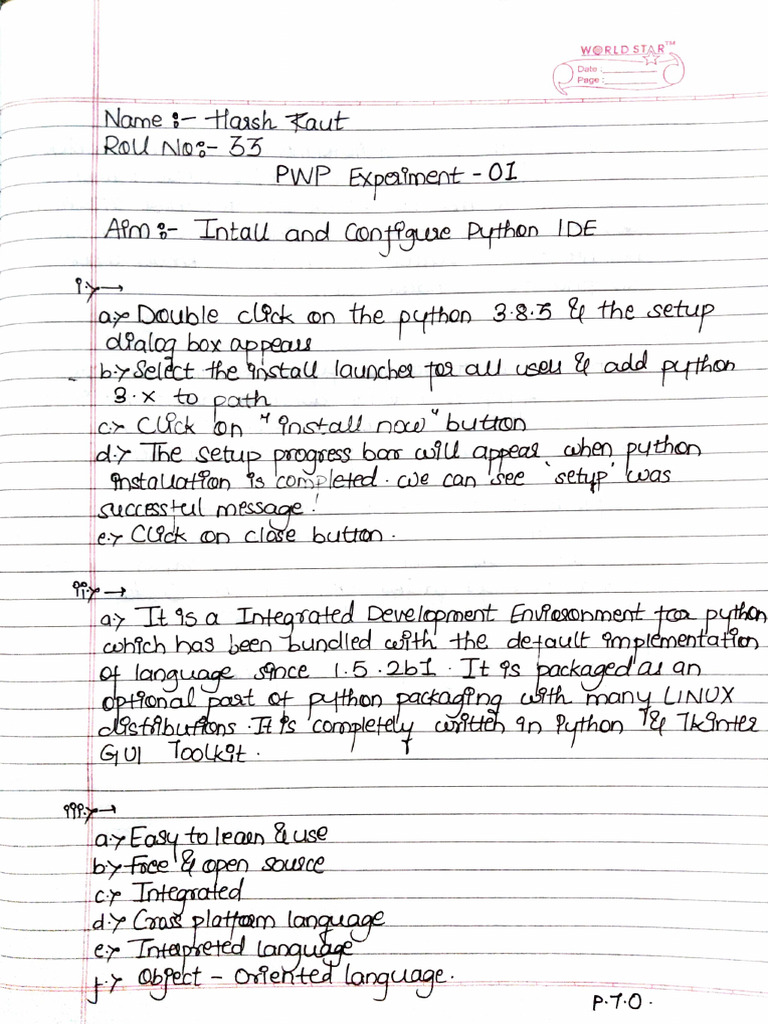 WORLD STAR™
Date :
Page :
Name :- Harsh Raut
Roll No:- 33
PWP Experiment - 01
Aim :- Intall and Configure Python IDE
i.>→
a.> Double click on the python 3.8.5 & the setup
dialog box appears
b.> Select the install launcher for all users & add python
3.x to path
c.> Click on "install now" button
d.> The setup progress bar will appear when python
installation is completed. we can see 'setup' was
successful message!
e.> Click on close button.
ii.>→
a.> It is a Integrated Development Envieronment for python
which has been bundled with the default implementation
of language since 1.5.2b1. It is packaged as an
optional part of python packaging with many LINUX
distributions. It is completely written in Python & Tkinter
GUI Toolkit.
iii.>→
a.> Easy to learn & use
b.> Free & open source
c.> Integrated
d.> Cross platform language
e.> Interpreted language
f.> Object - oriented language.
P.T.O.